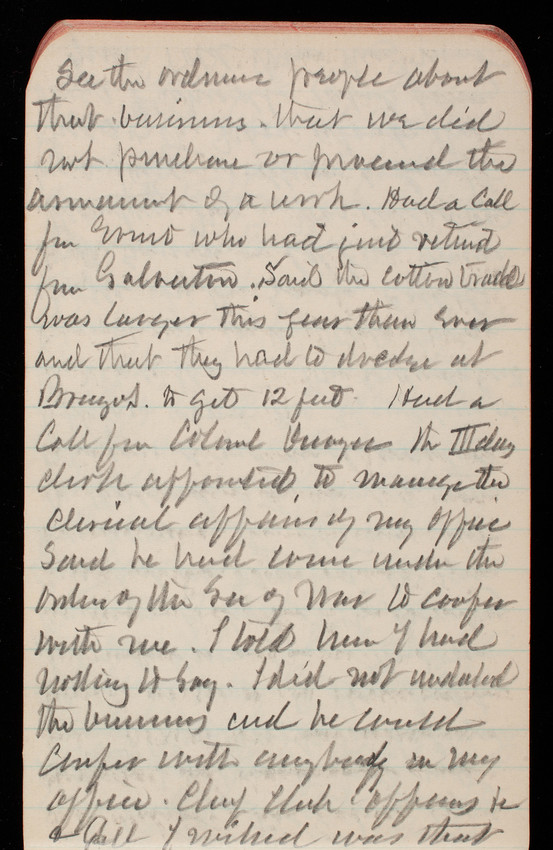 See the ordnance people about
that business. that we did
not purchase or proceed the
armament of a work. Had a call
from Ernst who had just returned
from Galveston. Said the cotton trade
was larger this year than ever
and that they had to dredge at
Brazos. to get 12 feet. Had a
Call from Colonel the III day
clerk appointed to manage the
clerical affairs of my office
Said he had come under the
orders of the Sec of War to confer
with me. I told him I had
nothing to say. I did not understand
the business and he could
Confer with anybody in my
office. Chief clerk officers &
Gill I wished was that